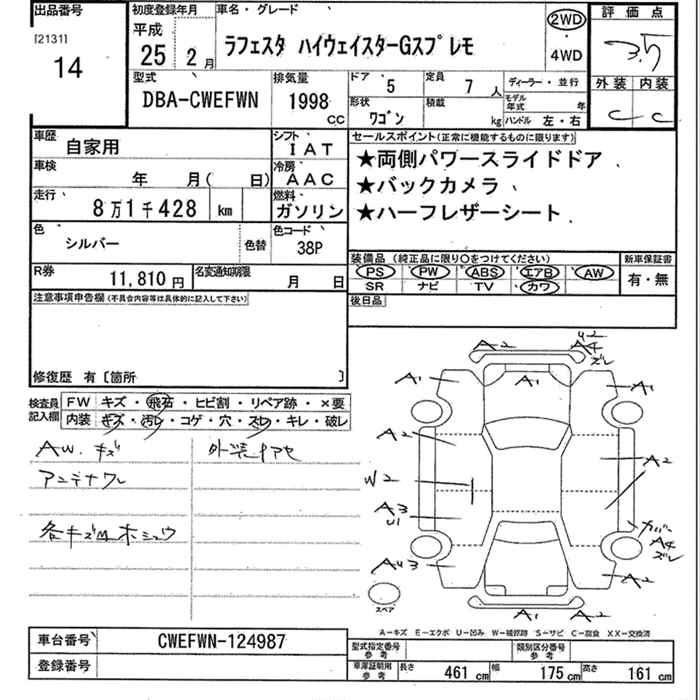 出品番号
[2131]
14
初度登録年月
平成
25年 2月
車名・グレード
ラフェスタ ハイウェイスターGスプレモ
2WD
・
4WD
評価点
3.5
外装 内装
C C
型式
DBA-CWEFWN
排気量
1998
CC
ドア 5
定員 7人
形状 ワゴン
積載 kg
ディーラー・並行
モデル年式 年
ハンドル 左・右
車歴 自家用
シフト IAT
車検 年 月( 日)
冷房 AAC
走行 8万1千428 km
燃料 ガソリン
色 シルバー 色替
色コード 38P
R券 11,810円
名変通知期限 月 日
セールスポイント(正常に機能するものに限ります)
★両側パワースライドドア
★バックカメラ
★ハーフレザーシート
装備品 (純正品に限り○をつけてください)
PS PW ABS エアB AW
SR ナビ TV カワ
新車保証書
有・無
後日品
注意事項申告欄(不具合内容等は具体的に記入して下さい)
修復歴 有〔箇所 〕
検査員記入欄
FW キズ・飛石・ヒビ割・リペア跡・×要
内装 キズ・汚レ・コゲ・穴・スレ・キレ・破レ
AW. キズ
外装ヤケセ
アンテナワレ
各キズ凹ホシュウ
A2
U2
A4
ズレ
A1
A1
A1
A2
A2
W2
A3
U1
カバー
A4
ズレ
AU3
A2
A1 A2
スペア
A-キズ E-エクボ U-凹み W-補修跡 S-サビ C-腐食 XX-交換済
車台番号 CWEFWN-124987
登録番号
型式指定番号 参考
類別区分番号 参考
車庫証明用 参考
長さ 461 cm
幅 175 cm
高さ 161 cm